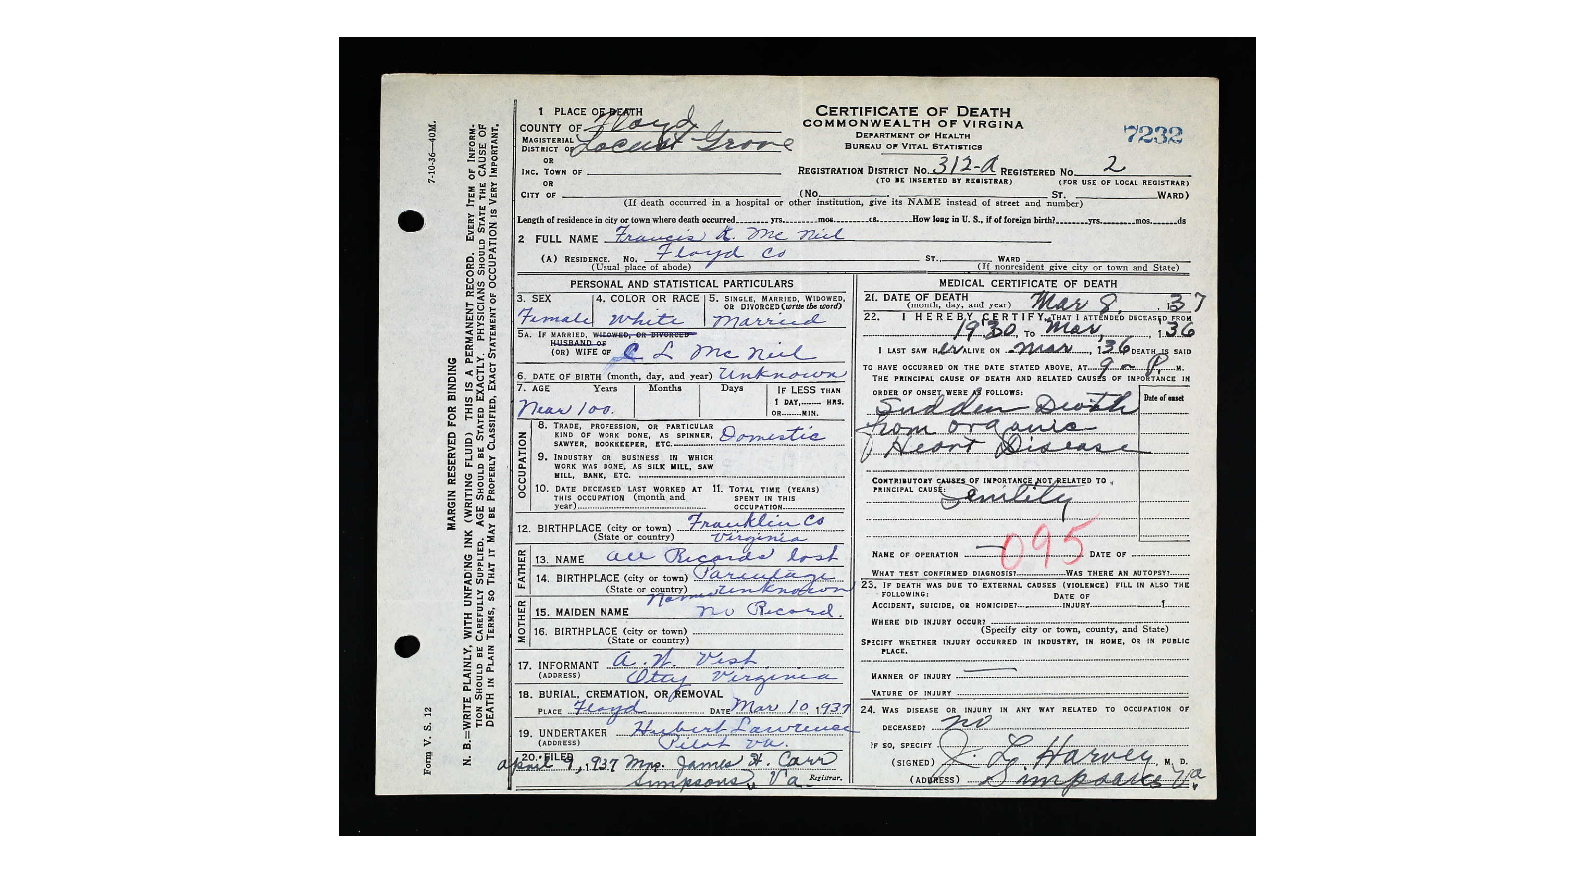 7-10-36—40M.
MARGIN RESERVED FOR BINDING
N. B.—WRITE PLAINLY, WITH UNFADING INK (WRITING FLUID). THIS IS A PERMANENT RECORD. EVERY ITEM OF INFORM-
TION SHOULD BE CAREFULLY SUPPLIED. AGE SHOULD BE STATED EXACTLY. PHYSICIANS SHOULD STATE THE CAUSE OF
DEATH IN PLAIN TERMS, SO THAT IT MAY BE PROPERLY CLASSIFIED. EXACT STATEMENT OF OCCUPATION IS VERY IMPORTANT.
Form V. S. 12
CERTIFICATE OF DEATH
COMMONWEALTH OF VIRGINIA
DEPARTMENT OF HEALTH
BUREAU OF VITAL STATISTICS
7232
1 PLACE OF DEATH
COUNTY OF Floyd
MAGISTERIAL DISTRICT OF Locust Grove
OR
INC. TOWN OF
OR
CITY OF
REGISTRATION DISTRICT NO. 312-A REGISTERED NO. 2
(TO BE INSERTED BY REGISTRAR) (FOR USE OF LOCAL REGISTRAR)
(No. ST. WARD)
(If death occurred in a hospital or other institution, give its NAME instead of street and number)
Length of residence in city or town where death occurred yrs. mos. ds. How long in U. S., if of foreign birth? yrs. mos. ds
2 FULL NAME Francis K. Mc Neil
(A) RESIDENCE. No. Floyd Co ST., WARD
(Usual place of abode) (If nonresident give city or town and State)
PERSONAL AND STATISTICAL PARTICULARS
3. SEX 4. COLOR OR RACE 5. SINGLE, MARRIED, WIDOWED, OR DIVORCED (write the word)
Female White Married
5A. IF MARRIED, WIDOWED, OR DIVORCED
HUSBAND OF
(OR) WIFE OF C L Mc Neil
6. DATE OF BIRTH (month, day, and year) Unknown
7. AGE Years Months Days IF LESS THAN
1 DAY, HRS.
Near 100. OR MIN.
OCCUPATION
8. TRADE, PROFESSION, OR PARTICULAR
KIND OF WORK DONE, AS SPINNER,
SAWYER, BOOKKEEPER, ETC. Domestic
9. INDUSTRY OR BUSINESS IN WHICH
WORK WAS DONE, AS SILK MILL, SAW
MILL, BANK, ETC.
10. DATE DECEASED LAST WORKED AT THIS OCCUPATION (month and year)
11. TOTAL TIME (YEARS) SPENT IN THIS OCCUPATION
12. BIRTHPLACE (city or town) Franklin Co
(State or country) Virginia
FATHER
13. NAME all Records lost
14. BIRTHPLACE (city or town) Parentage
(State or country) Names unknown
MOTHER
15. MAIDEN NAME no Record.
16. BIRTHPLACE (city or town)
(State or country)
17. INFORMANT A. W. Vest
(ADDRESS) Otey Virginia
18. BURIAL, CREMATION, OR REMOVAL
PLACE Floyd DATE Mar 10, 1937
19. UNDERTAKER Hubert Lawrence
(ADDRESS) Pilot Va.
20. FILED April 9, 1937 Mrs. James H. Carr
Simpsons, Va. Registrar.
MEDICAL CERTIFICATE OF DEATH
21. DATE OF DEATH
(month, day, and year) Mar 8, 37
22. I HEREBY CERTIFY, THAT I ATTENDED DECEASED FROM
1930 TO Mar, 1936
I LAST SAW HER ALIVE ON Mar, 1936 DEATH IS SAID
TO HAVE OCCURRED ON THE DATE STATED ABOVE, AT 9 - P. M.
THE PRINCIPAL CAUSE OF DEATH AND RELATED CAUSES OF IMPORTANCE IN
ORDER OF ONSET WERE AS FOLLOWS: Date of onset
Sudden Death
from organic
Heart Disease
CONTRIBUTORY CAUSES OF IMPORTANCE NOT RELATED TO
PRINCIPAL CAUSE: Senility
095
NAME OF OPERATION — DATE OF
WHAT TEST CONFIRMED DIAGNOSIS? WAS THERE AN AUTOPSY?
23. IF DEATH WAS DUE TO EXTERNAL CAUSES (VIOLENCE) FILL IN ALSO THE
FOLLOWING: DATE OF
ACCIDENT, SUICIDE, OR HOMICIDE? INJURY 1
WHERE DID INJURY OCCUR?
(Specify city or town, county, and State)
SPECIFY WHETHER INJURY OCCURRED IN INDUSTRY, IN HOME, OR IN PUBLIC
PLACE.
MANNER OF INJURY
NATURE OF INJURY
24. WAS DISEASE OR INJURY IN ANY WAY RELATED TO OCCUPATION OF
DECEASED? no
IF SO, SPECIFY
(SIGNED) J. L. Harvey, M. D.
(ADDRESS) Simpsons Va